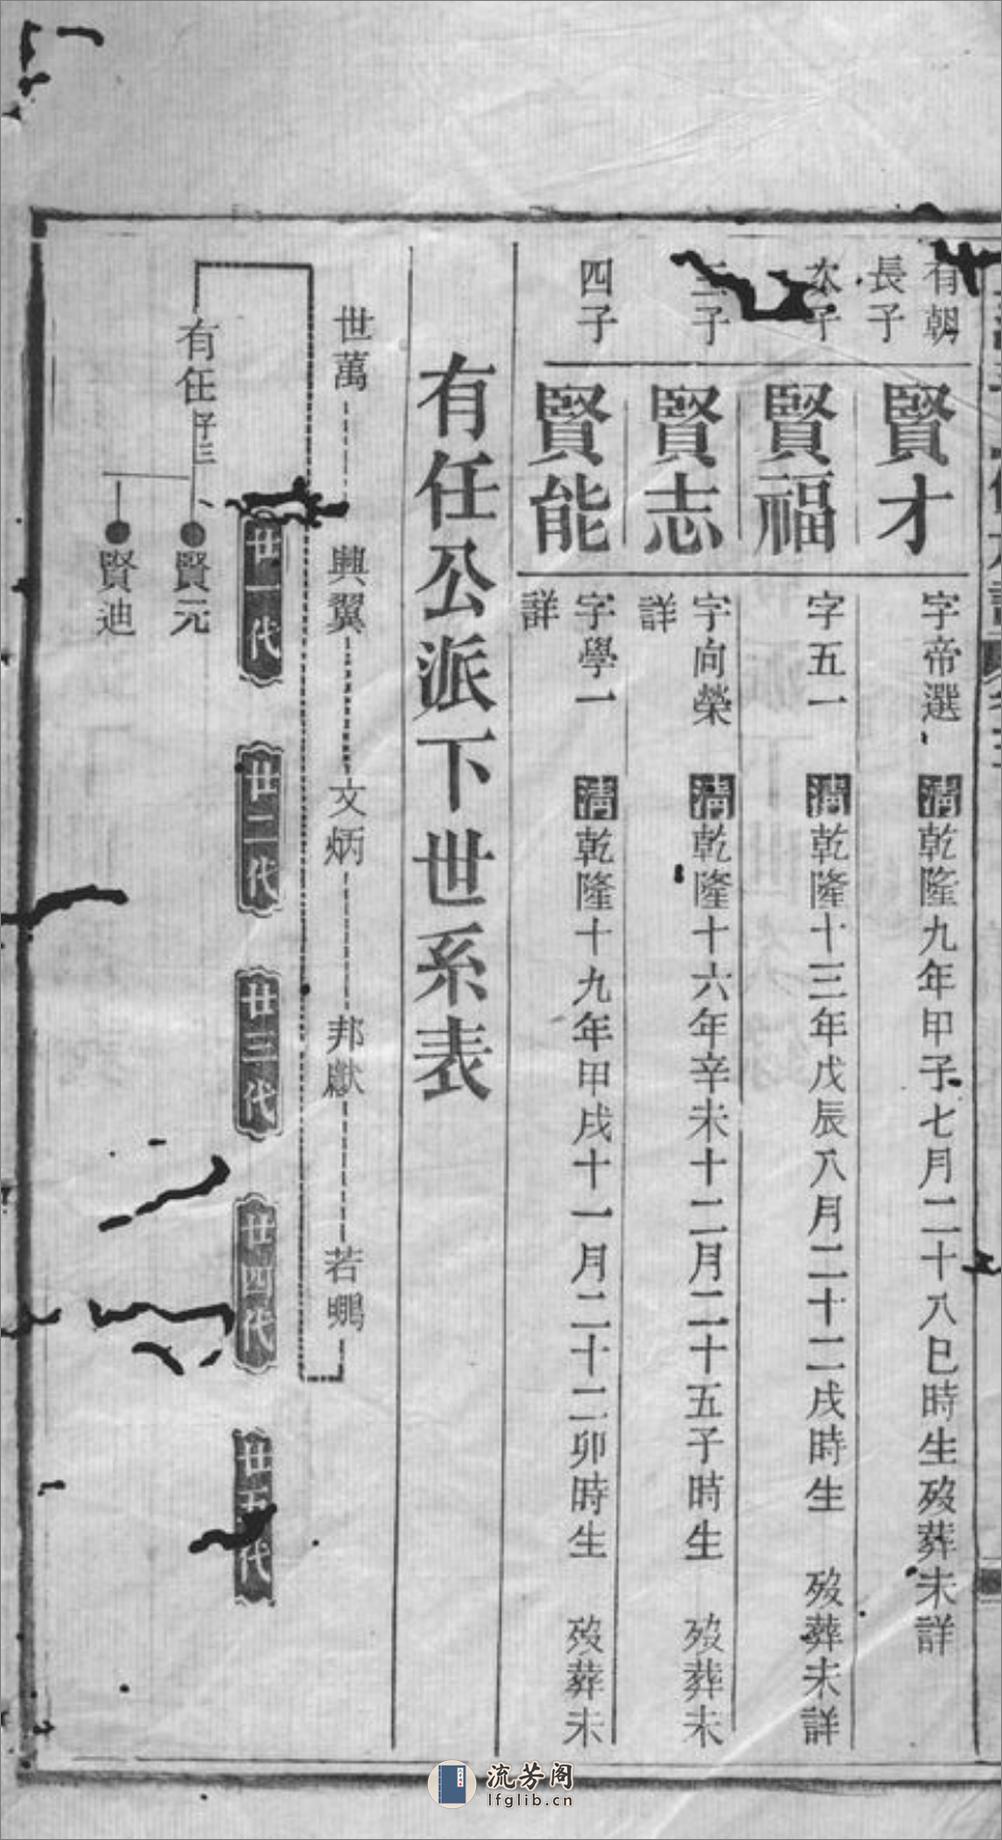 有朝
長子
賢才
字帝選
清乾隆九年甲子七月二十八巳時生歿葬未詳
次子
賢福
字五一
清乾隆十三年戊辰八月二十二戌時生 歿葬未詳
三子
賢志
字向榮
清乾隆十六年辛未十二月二十五子時生 歿葬未
詳
四子
賢能
字學一
清乾隆十九年甲戌十一月二十二卯時生 歿葬未
詳
有任公派下世系表
世萬
興翼
文炳
邦獻
若鵬
廿一代
廿二代
廿三代
廿四代
廿五代
有任
賢元
賢迪
流芳阁
lfglib.cn